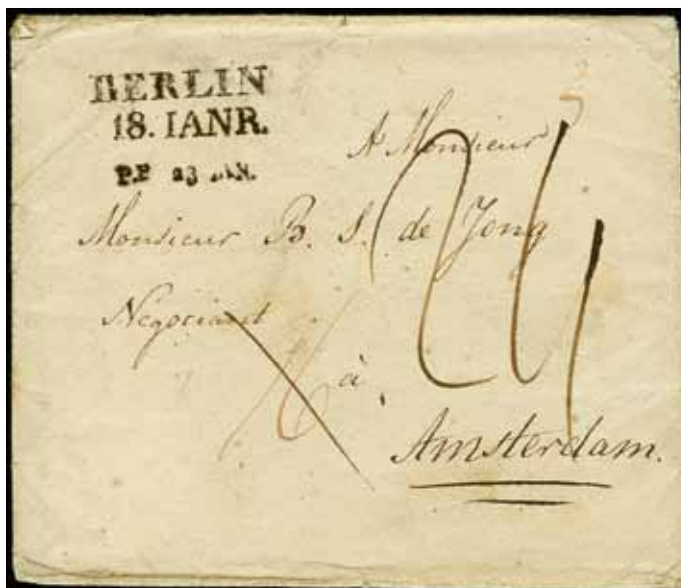 BERLIN
18. IANR.
P.P 23 JAN.
A Monsieur
Monsieur B. S. de Jong
Négociant
à
Amsterdam.